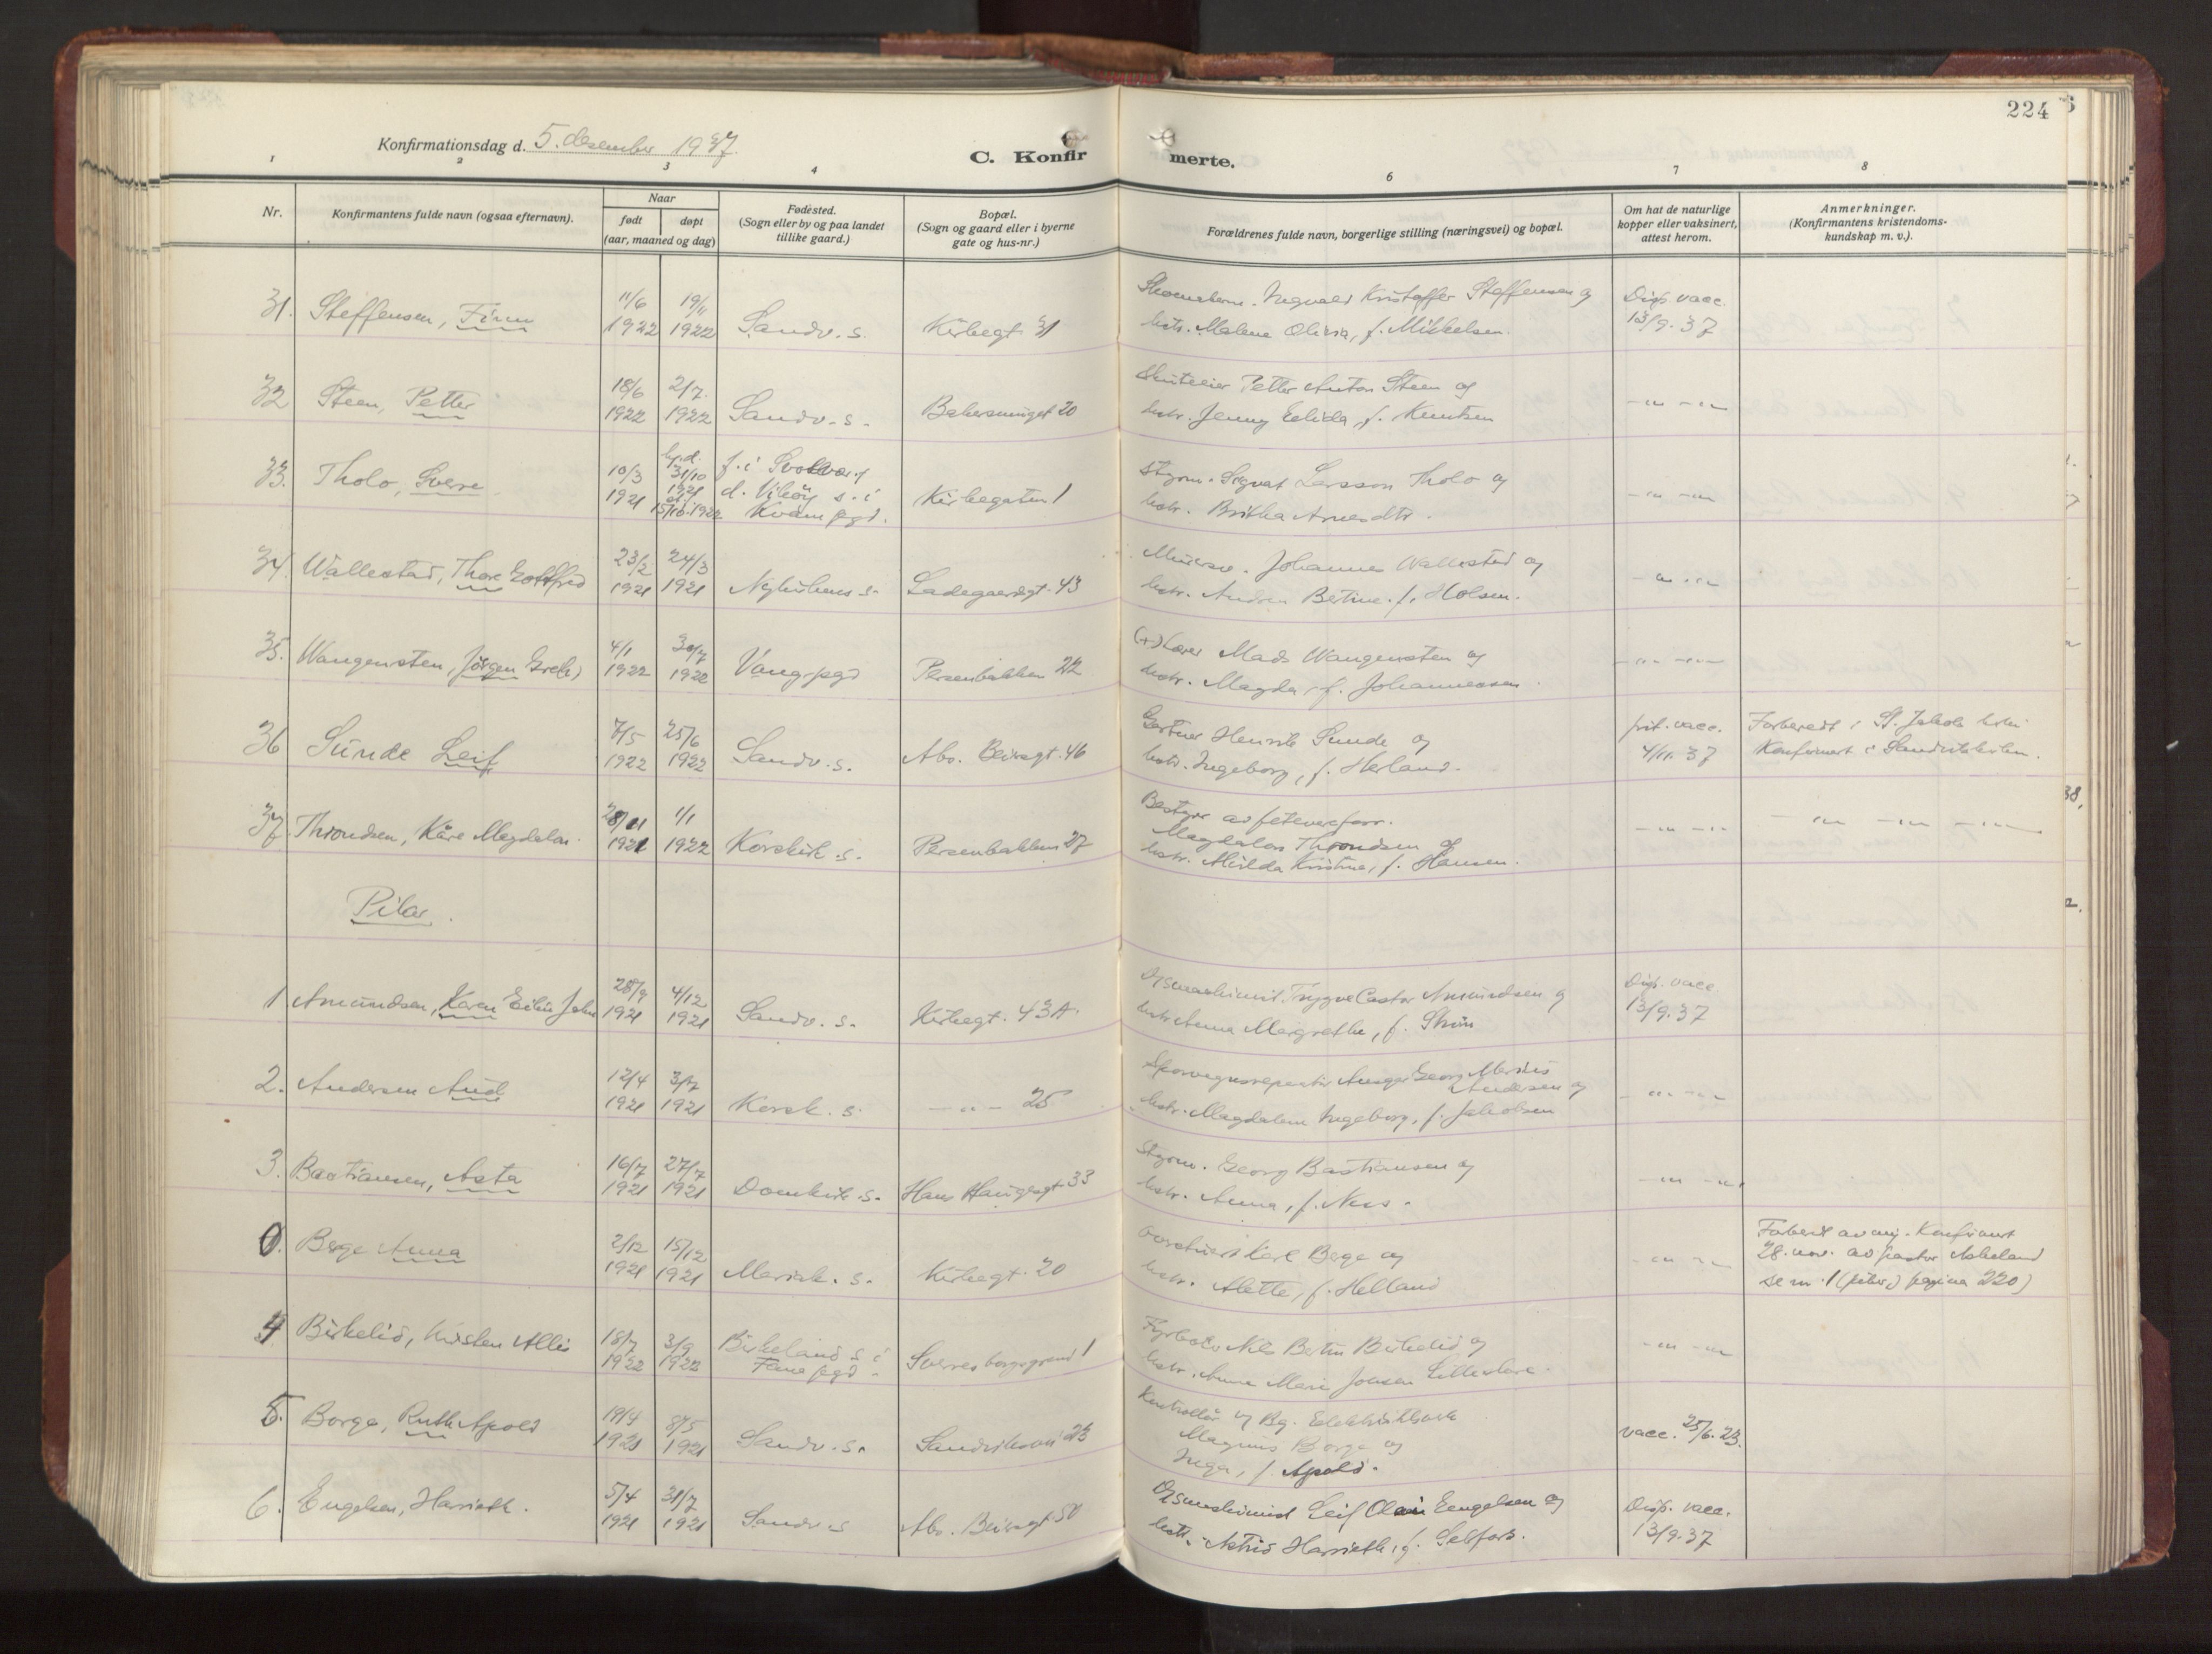 224
Konfirmationsdag d. 5. desember 1937.
C. Konfirmerte.
1 2 3 4 6 7 8
Nr.
Konfirmantens fulde navn (ogsaa efternavn).
Naar
født
døpt
(aar, maaned og dag)
Fødested.
(Sogn eller by og paa landet
tillike gaard.)
Bopæl.
(Sogn og gaard eller i byerne
gate og hus-nr.)
Forældrenes fulde navn, borgerlige stilling (næringsvei) og bopæl.
Om hat de naturlige
kopper eller vaksinert,
attest herom.
Anmerkninger.
(Konfirmantens kristendoms-
kundskap m. v.).
31. Steffensen, Finn 11/6 1922 19/11 1922 Sandv. s. Kirkegt. 31
Ingvald Kristoffer Steffensen og
hstr. Malene Olivia, f. Mikkelsen.
Disp. vacc.
13/9.37
32 Steen, Petter 18/6 1922 2/7. 1922 Sandv. s. 20
Petter Anton Steen og
hstr. Jenny Elida, f. Knutsen
-"- -"-
33. Tholo, Sverre 10/3 1921 hj.d. 31/10 1921 15/10.1922
f. i Svolvær,
d. Vikøy s. i
Kvam pgd.
Kirkegaten 1
Styrm. Sigvat Larsson Tholo og
hstr. Britha Arnesdtr.
-"- -"-
34. Wallestad, Thore Gottfred 23/2 1921 24/3 1921 Nykirkens s. Ladegaardsgt. 43
Johannes Wallestad og
hstr. Andrea Bertine. f. Holsen.
-"- -"-
35. Wangensten, Jörgen 4/1 1922 30/7 1922 Vang pgd Persenbakken 22
(+) Lærer Mads Wangensten og
hstr. Magda, f. Johannessen.
-"- -"-
36 Sunde Leif 7/5 1922 25/6 1922 Sandv. s. Abs. Beiersgt. 46
Gartner Henrik Sunde og
hstr. Ingeborg, f. Herland.
vacc.
4/11.37
Forberedt i St. Jakob
Konfirmert i Sandvikskirken.
37. Throndsen, Kåre Magdalon. 28/11 1921 1/1 1922 Korskirk. s. Persenbakken 27
Magdalon Throndsen og
hstr. Kristine, f. Hansen.
-"- -"- -"- -"- -"-
Piker.
1 Amundsen, Karen 28/9 1921 4/12 1921 Sandv. s. Kirkegt. 43A.
Trygve Castor Amundsen og
hstr Anna Margrethe, f.
Disp. vacc.
13/9.37
2. Andersen Aud 12/4 1921 3/7 1921 Korsk. s. -"- 25
Georg
Andersen og
hstr. Magdalene Ingeborg, f. Jakobsen
-"- -"-
3. Bastiansen, Asta 16/7 1921 27/7 1921 Domkirk. s. Hans Haugesgt. 33
Styrm. Georg Bastiansen og
hstr. Anna, f. Ness.
-"- -"-
0. Berge Anna 2/12 1921 15/12 1921 Mariak. s. Kirkegt. 20
Karl Berge og
hstr. Alette, f. Helland
-"- -"-
Forbered av mig. Konfirmert
28. nov. av pastor Askeland
se nr. 1 (piker) pagina 220)
4 Birkelid, Kirsten Allis 18/7 1922 3/9 1922
Birkeland s. i
Fana pgd.
Sverresborgsgrend 1
Fyrbøter Nils Bertin Birkelid og
hstr. Anna Marie Johsen
-"- -"-
5. Borge, Ruth Apold 19/4 1921 8/5 1921 Sandv. s. Sandviksvei 23
Kontrollør v/ Bg.
Magnus Borge og
Inga, f. Apold.
vacc. 25/6.23.
6. Engelsen, Harrieth. 5/4 1921 31/7 1921 Sandv. s Abs. Beiersgt 50
Leif Olai Eengelsen og
hstr. Astrid Harrieth, f.
Disp. vacc.
13/9.37